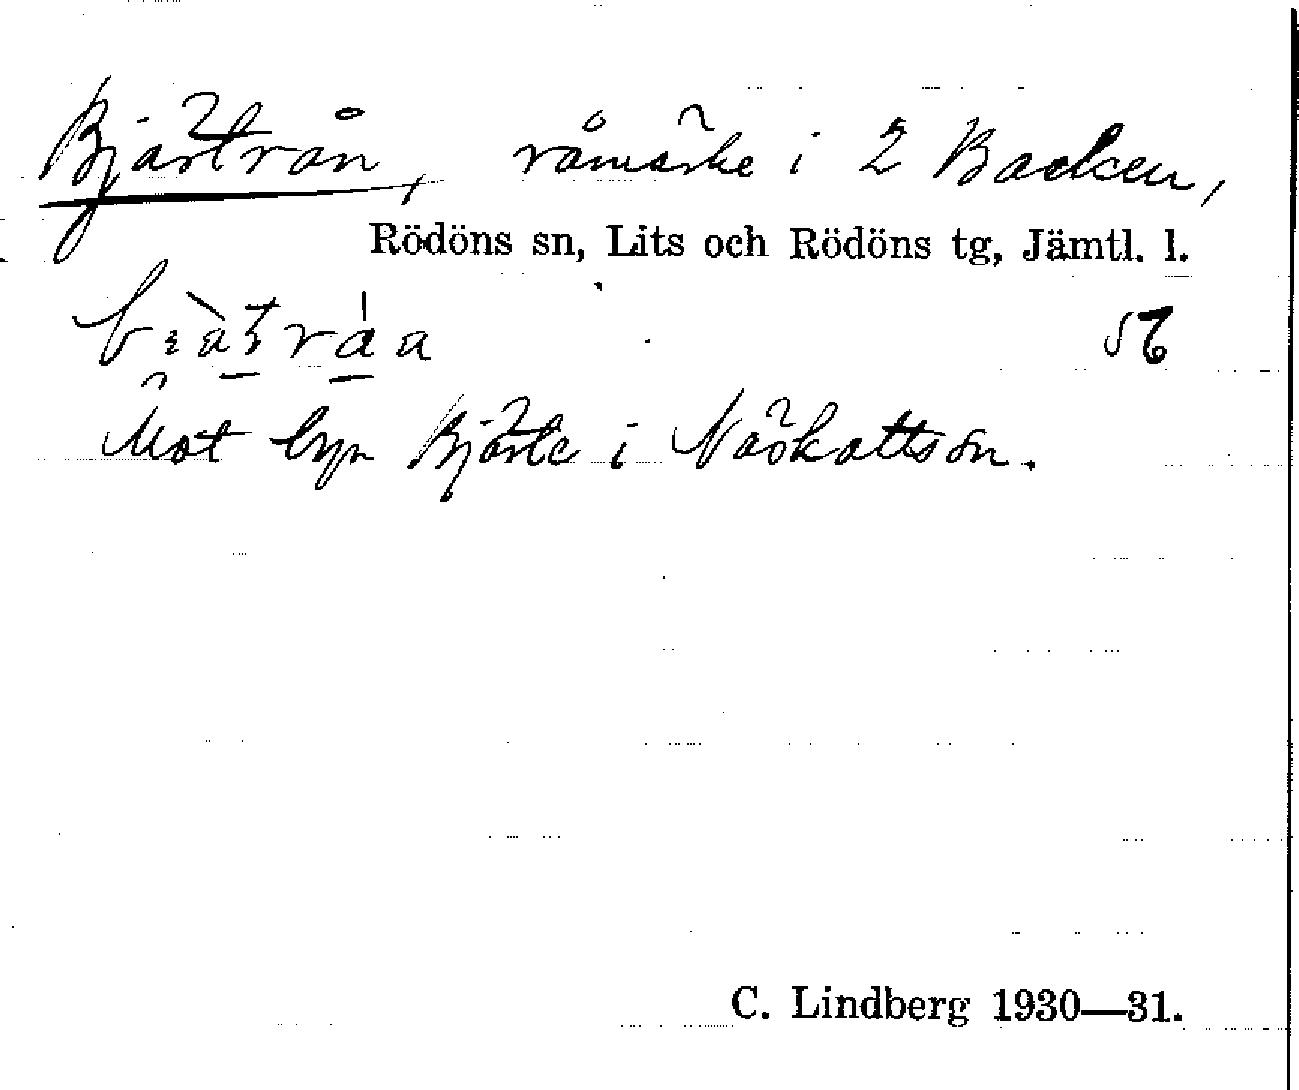 Bjärtrån, råmärke i 2 Backen,
Rödöns sn, Lits och Rödöns tg, Jämtl. l.
56
Mot byn Bjärte i Näskottssn.
C. Lindberg 1930—31.